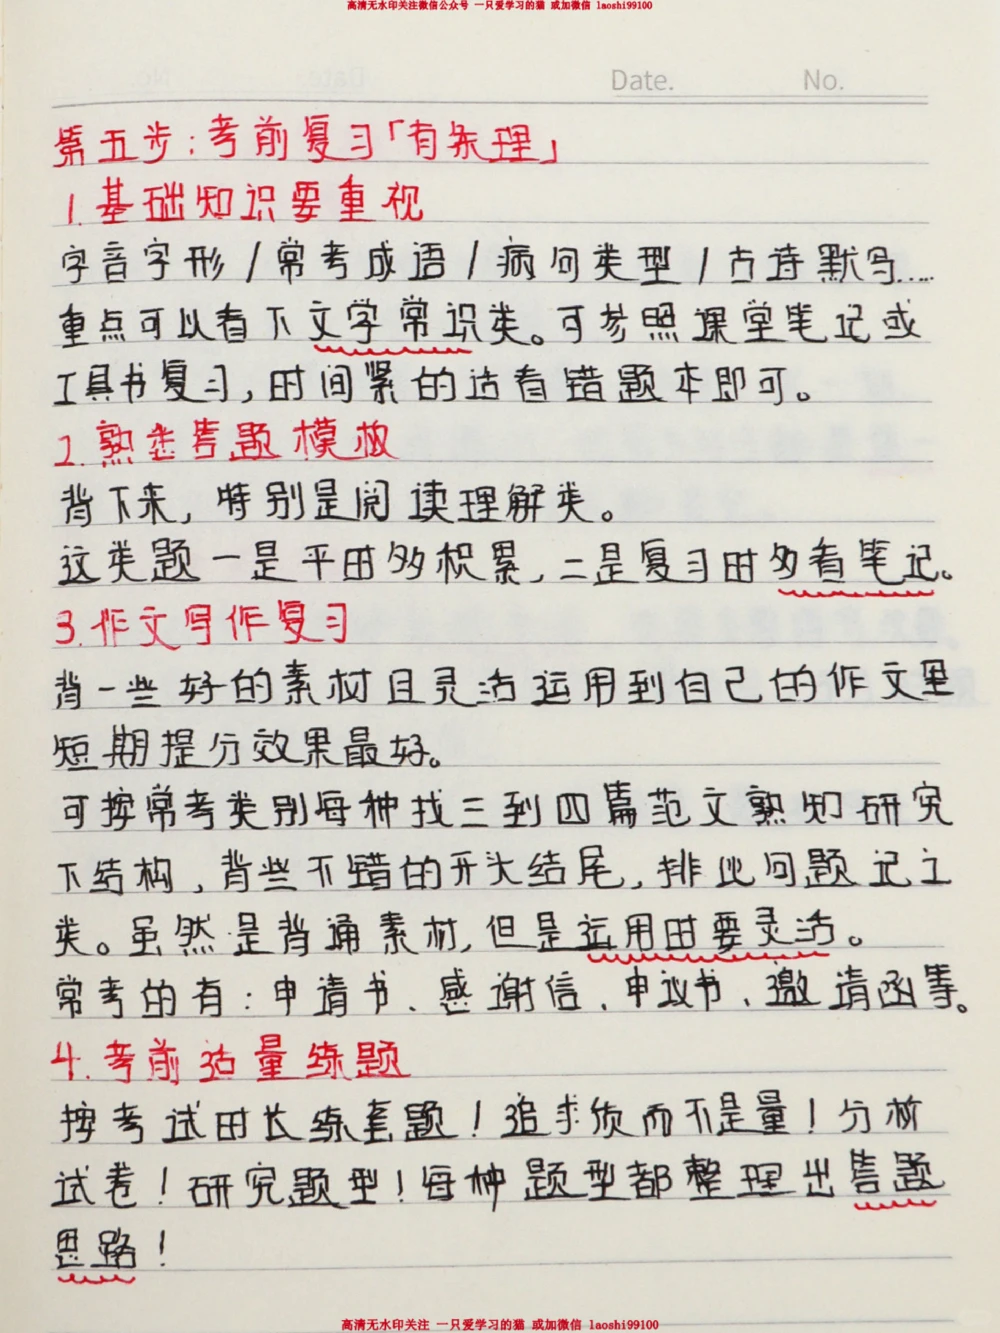 高清无水印关注微信公众号 一只爱学习的猫 或加微信 laoshi99100
Date. No.
第五步:考前复习「有条理」
1.基础知识要重视
字音字形/常考成语/病句类型/古诗默写.....
重点可以看下文学常识类。可参照课堂笔记或
工具书复习,时间紧的话看错题本即可。
2.熟悉答题模板
背下来,特别是阅读理解类。
这类题一是平时多积累,二是复习时多看笔记。
3.作文写作复习
背一些好的素材且灵活运用到自己的作文里
短期提分效果最好。
可按常考类别每种找三到四篇范文熟知研究
下结构,背些不错的开头结尾,排比问题记立
类。虽然是背诵素材,但是运用时要灵活。
常考的有:申请书、感谢信、申议书、邀请函等。
4.考前适量练题
按考试时长练套题!追求质而不是量!分析
试卷!研究题型!每种题型都整理出答题
思路!
高清无水印关注 一只爱学习的猫 或加微信 laoshi99100